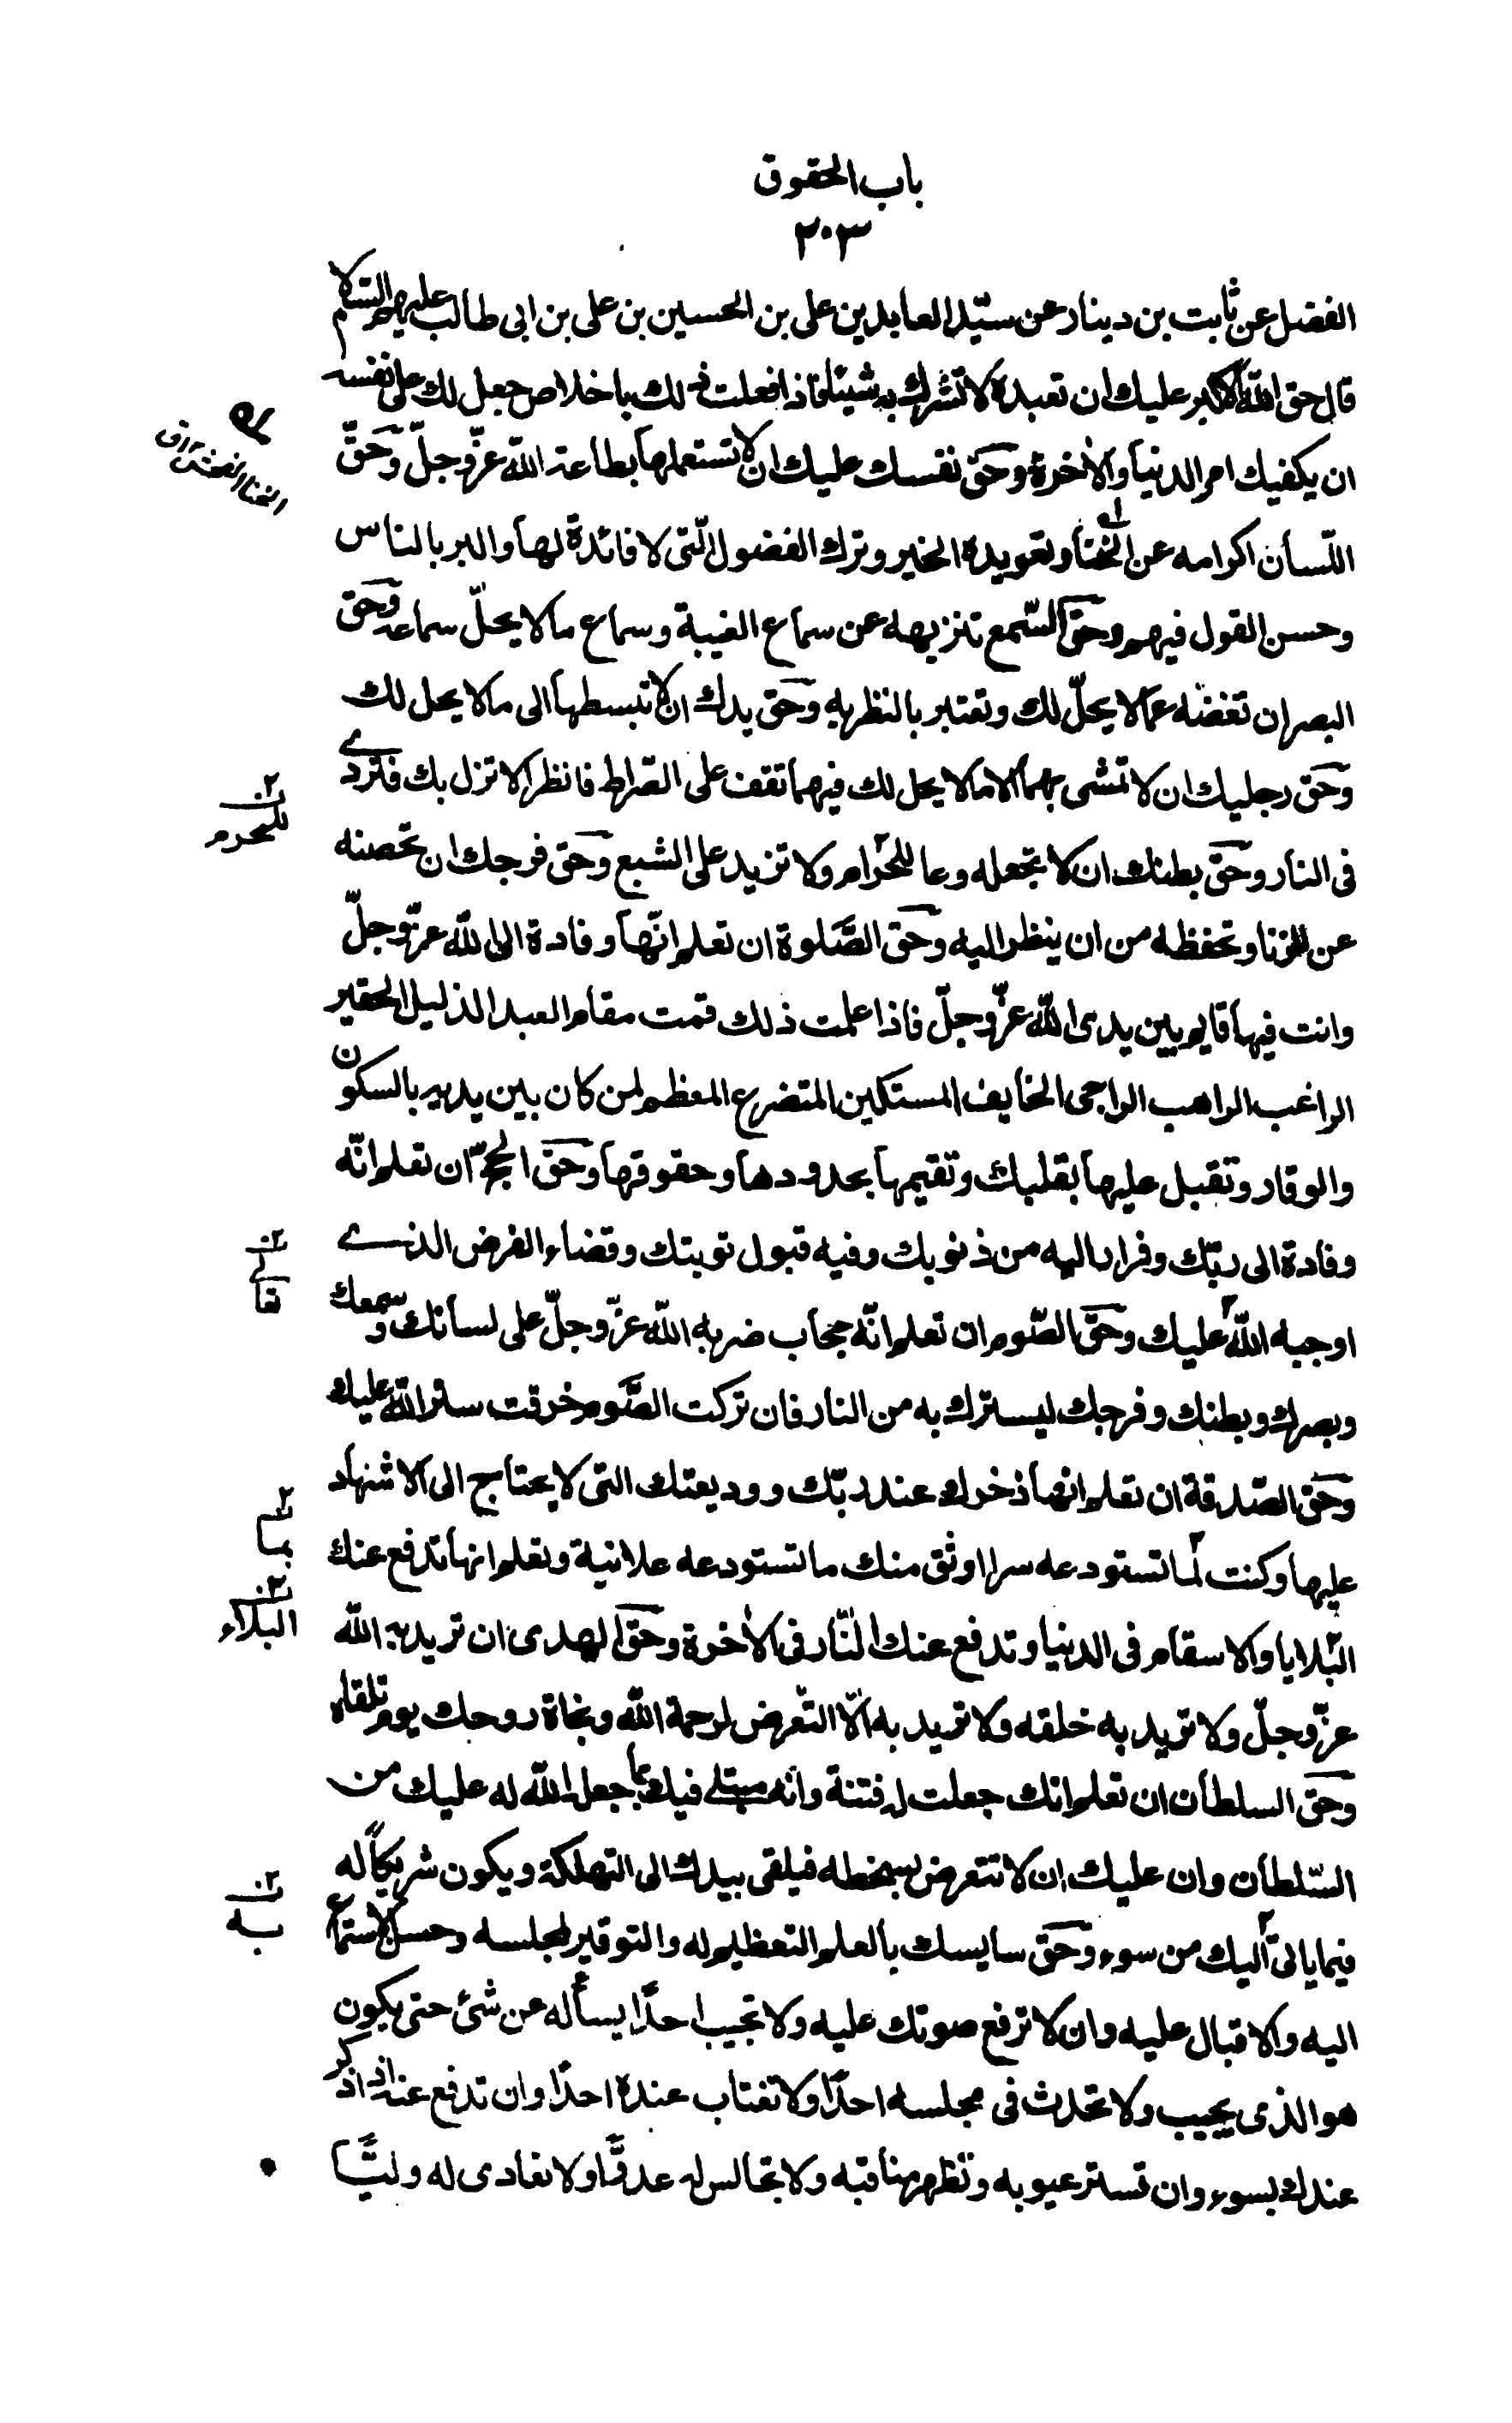 باب الحقوق
٢٠٣
الفضل عن ثابت بن دينار عن سيّد العابدين على بن الحسين بن على بن ابى طالب عليهم السّلام
قال حق اللّه الاكبر عليك ان تعبده لا تشرك به شيئا فاذا فعلت ذلك باخلاص جعل لك على نفسه
ان يكفيك امر الدنيا والاخرة وحق نفسك عليك ان لا تستعملها بطاعة اللّه عزّوجلّ وحقّ
اللّسان اكرامه عن الخنا وتعويده الخير وترك الفضول الّتى لا فائدة لها والبر بالناس
وحسن القول فيهم وحق السّمع تنزيهه عن سماع الغيبة وسماع ما لا يحلّ سماعه وحق
البصر ان تغضه عما لا يحلّ لك وتعتبر بالنظر به وحق يدك ان لا تبسطها الى ما لا يحل لك
وحق رجليك ان لا تمشى بهما الا ما لا يحل لك فيهما تقف على الصّراط فانظر الا تزل بك فتردى
فى النار وحقّ بطنك ان لا تجعله وعا للحرام ولا تزيد على الشبع وحق فرجك ان تحصنه
للمحرم
عن الزنا وتحفظه من ان ينظر اليه وحق الصّلوة ان تعلم انّها وفادة الى اللّه عزّوجلّ
وانت فيها قايم بين يدى اللّه عزّوجلّ فاذا علمت ذلك قمت مقام العبد الذليل الحقير
الراغب الراهب الراجى الخايف المستكين المتضرع المعظم لمن كان بين يديه بالسكون
والوقار وتقبل عليها بقلبك وتقيمها بحدودها وحقوقها وحق الحجّ ان تعلم انّه
وفادة الى ربّك وفرار اليه من ذنوبك وفيه قبول توبتك وقضاء الفرض الذى
تعالى
اوجبه اللّه عليك وحقّ الصّوم ان تعلم انّه حجاب ضربه اللّه عزّوجلّ على لسانك وسمعك
وبصرك وبطنك وفرجك ليسترك به من النار فان تركت الصّوم خرقت ستر اللّه عليك
وحق الصّدقة ان تعلم انها ذخرك عند ربّك ووديعتك التى لا يحتاج الى الاشهاد
بما
عليها وكنت لما تستودعه سرا اوثق منك ما تستودعه علانية وتعلم انها تدفع عنك
البلاء
البلايا والاسقام فى الدنيا وتدفع عنك النّار فى الاخرة وحق الهدى ان تريد به اللّه
عزّوجلّ ولا تريد به خلقه ولا تريد به الّا التّعرض لرحمة اللّه ونجاة روحك يوم تلقاه
وحق السلطان ان تعلم انك جعلت له فتنة وانّه مبتلى فيك بما جعل اللّه له عليك من
السّلطان وان عليك ان لا تتعرض لسخطه فيلقى بيدك الى التهلكة ويكون شريكا له
به
فيما ياتى اليك من سوء وحق سايسك بالعلم التعظيم له والتوقير لمجلسه وحسن الاستماع
اليه والاقبال عليه وان لا ترفع صوتك عليه ولا تجيب احدًا يسأله عن شئ حتى يكون
هو الذى يجيب ولا تحدث فى مجلسه احدًا ولا تغتاب عنده احدًا وان تدفع عنه اذا ذكر
عندك بسوء وان تستر عيوبه وتظهر مناقبه ولا تجالس له عدوًّا ولا تعادى له وليًّا